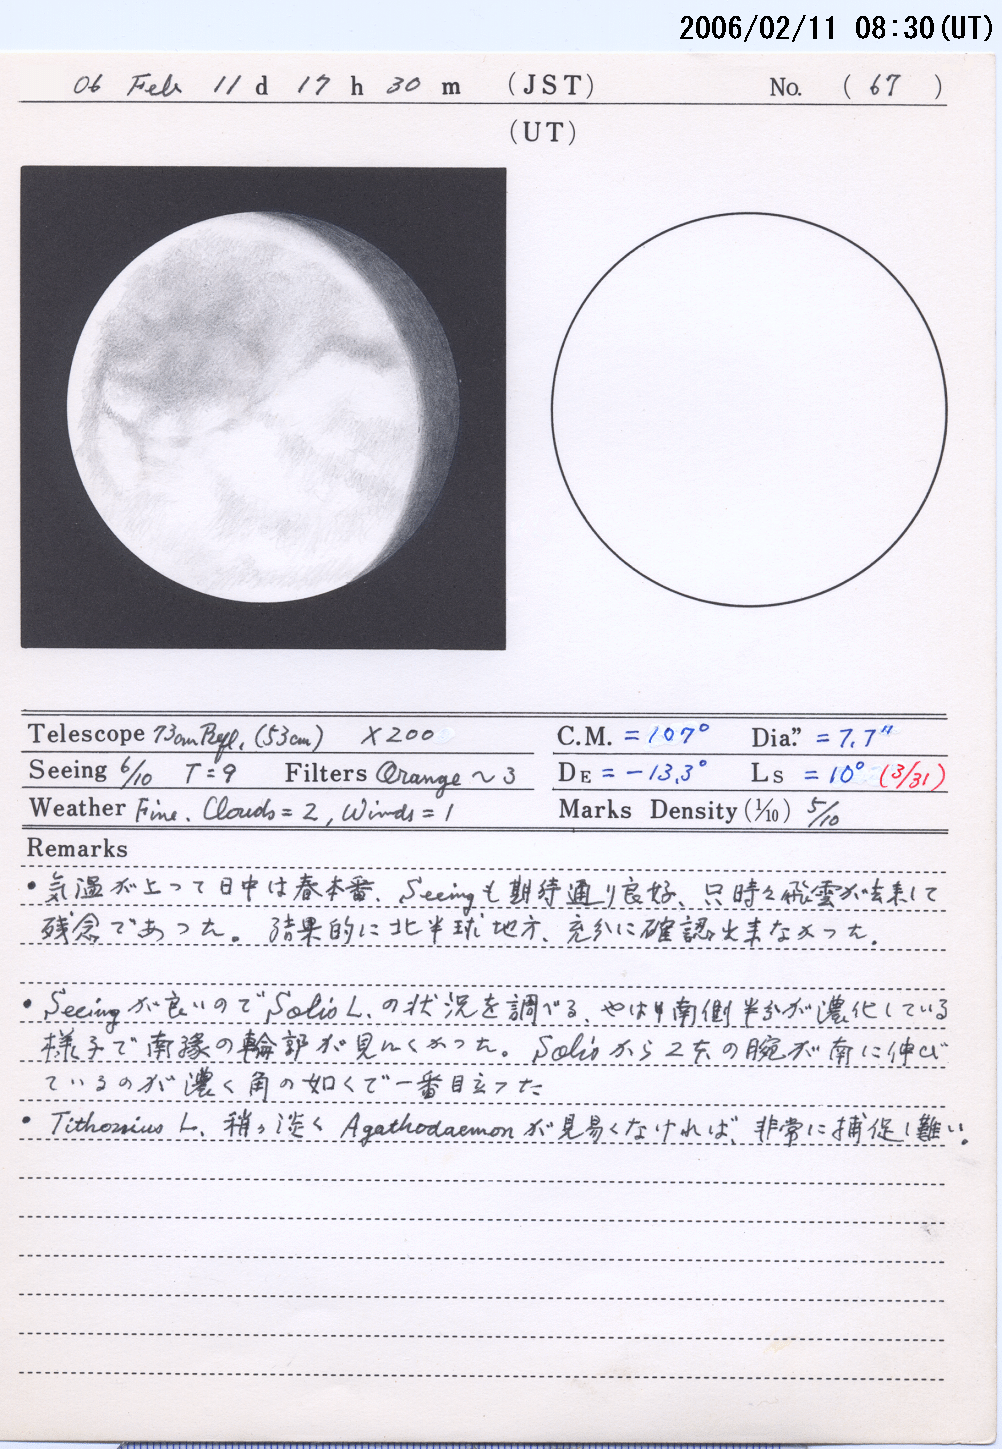 2006/02/11 08:30(UT)
06 Feb 11 d 17 h 30 m (JST) No. (67)
(UT)
Telescope 73cm Refl. (53cm) ×200
C.M. = 107° Dia." = 7.7"
Seeing 6/10 T=9 Filters Orange ~ 3
DE = -13.3° Ls = 10° (3/31)
Weather Fine. Clouds = 2, Winds = 1
Marks Density (1/10) 5/10
Remarks
• 気温が上って日中は春本番、Seeingも期待通り良好、只時々飛雲が去来して
残念であった。結果的に北半球地方、充分に確認出来なかった。
• Seeingが良いのでSolis L.の状況を調べる、やはり南側半分が濃化している
様子で南縁の輪郭が見にくかった。Solisから2本の腕が南に伸び
ているのが濃く角の如くで一番目立った
• Tithonius L. 稍々淡く Agathodaemonが見易くなければ、非常に捕捉し難い。